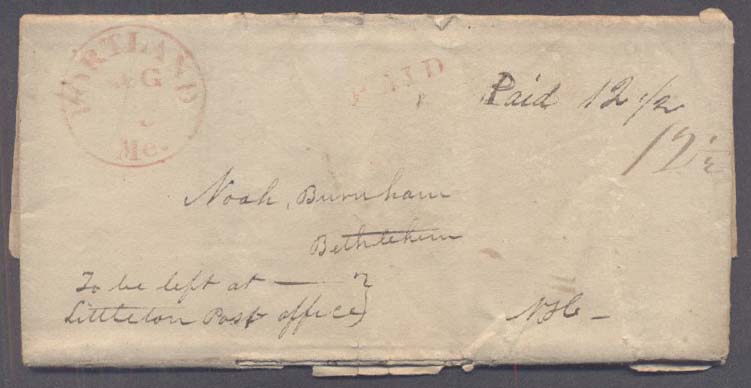 PORTLAND
Me.
PAID
Paid 12 1/2
12 1/2
Noah Burnham
Bethlehem
To be left at —
Littleton Post office
NH —